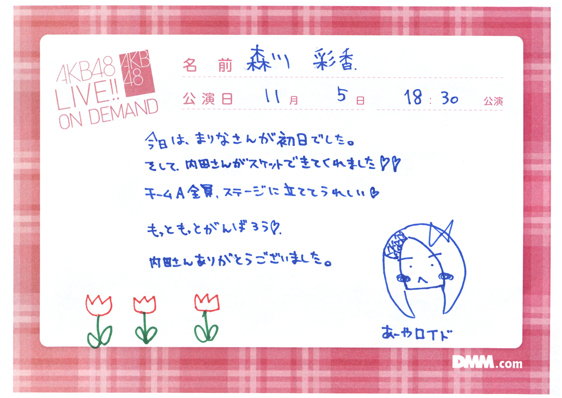 AKB48
LIVE!!
ON DEMAND
AKB
48
名 前 森川 彩香.
公演日 11月 5日 18:30 公演
今日は、まりなさんが初日でした。
そして、内田さんがスケットできてくれました♡♡
チームA全員、ステージに立ててうれしい♡
もっともっとがんばろう♡.
内田さんありがとうございました。
あーやロイド
DMM.com